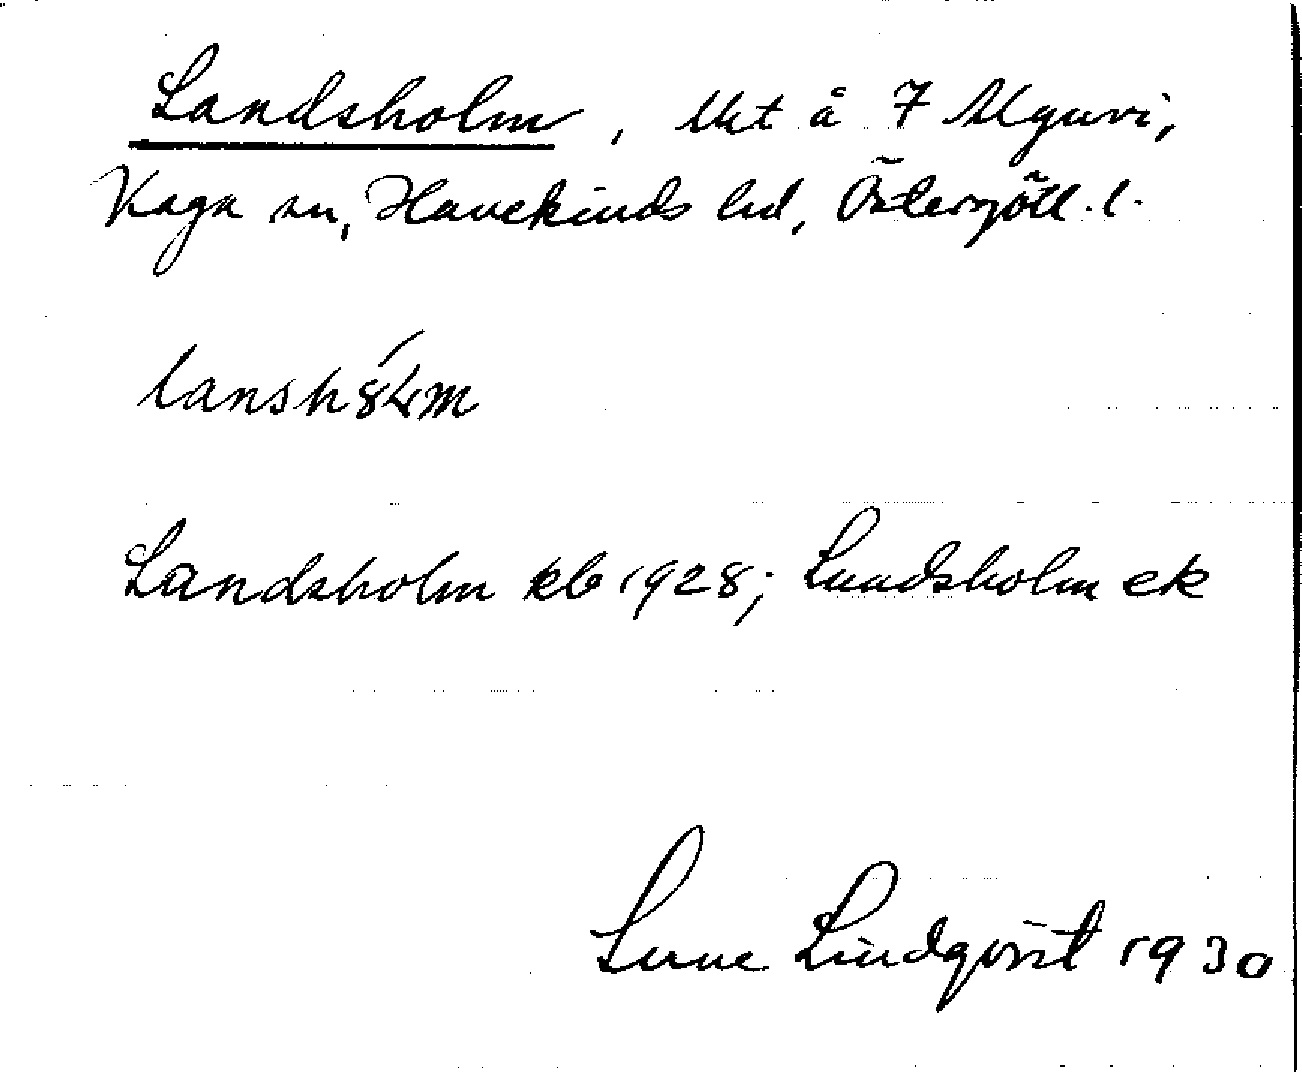 Landsholm, lht å 7 Älguvi,
Kaga sn, Hanekinds hd, Östergötl. l.
lansh
Landsholm kb 1928; Lundsholm ek
Sune Lindqvist 1930